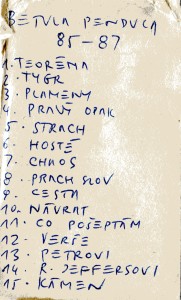 BETULA PENDULA
85-87
1. TEORÉMA
2. TYGR
3. PLAMENY
4. PRAVÝ OPAK
5. STRACH
6. HOSTÉ
7. CHAOS
8. PRACH SLOV
9. CESTA
10. NÁVRAT
11. CO POŠEPTÁM
12. VEŘÍE
13. PETROVI
14. R. JEFFERSOVI
15. KÁMEN